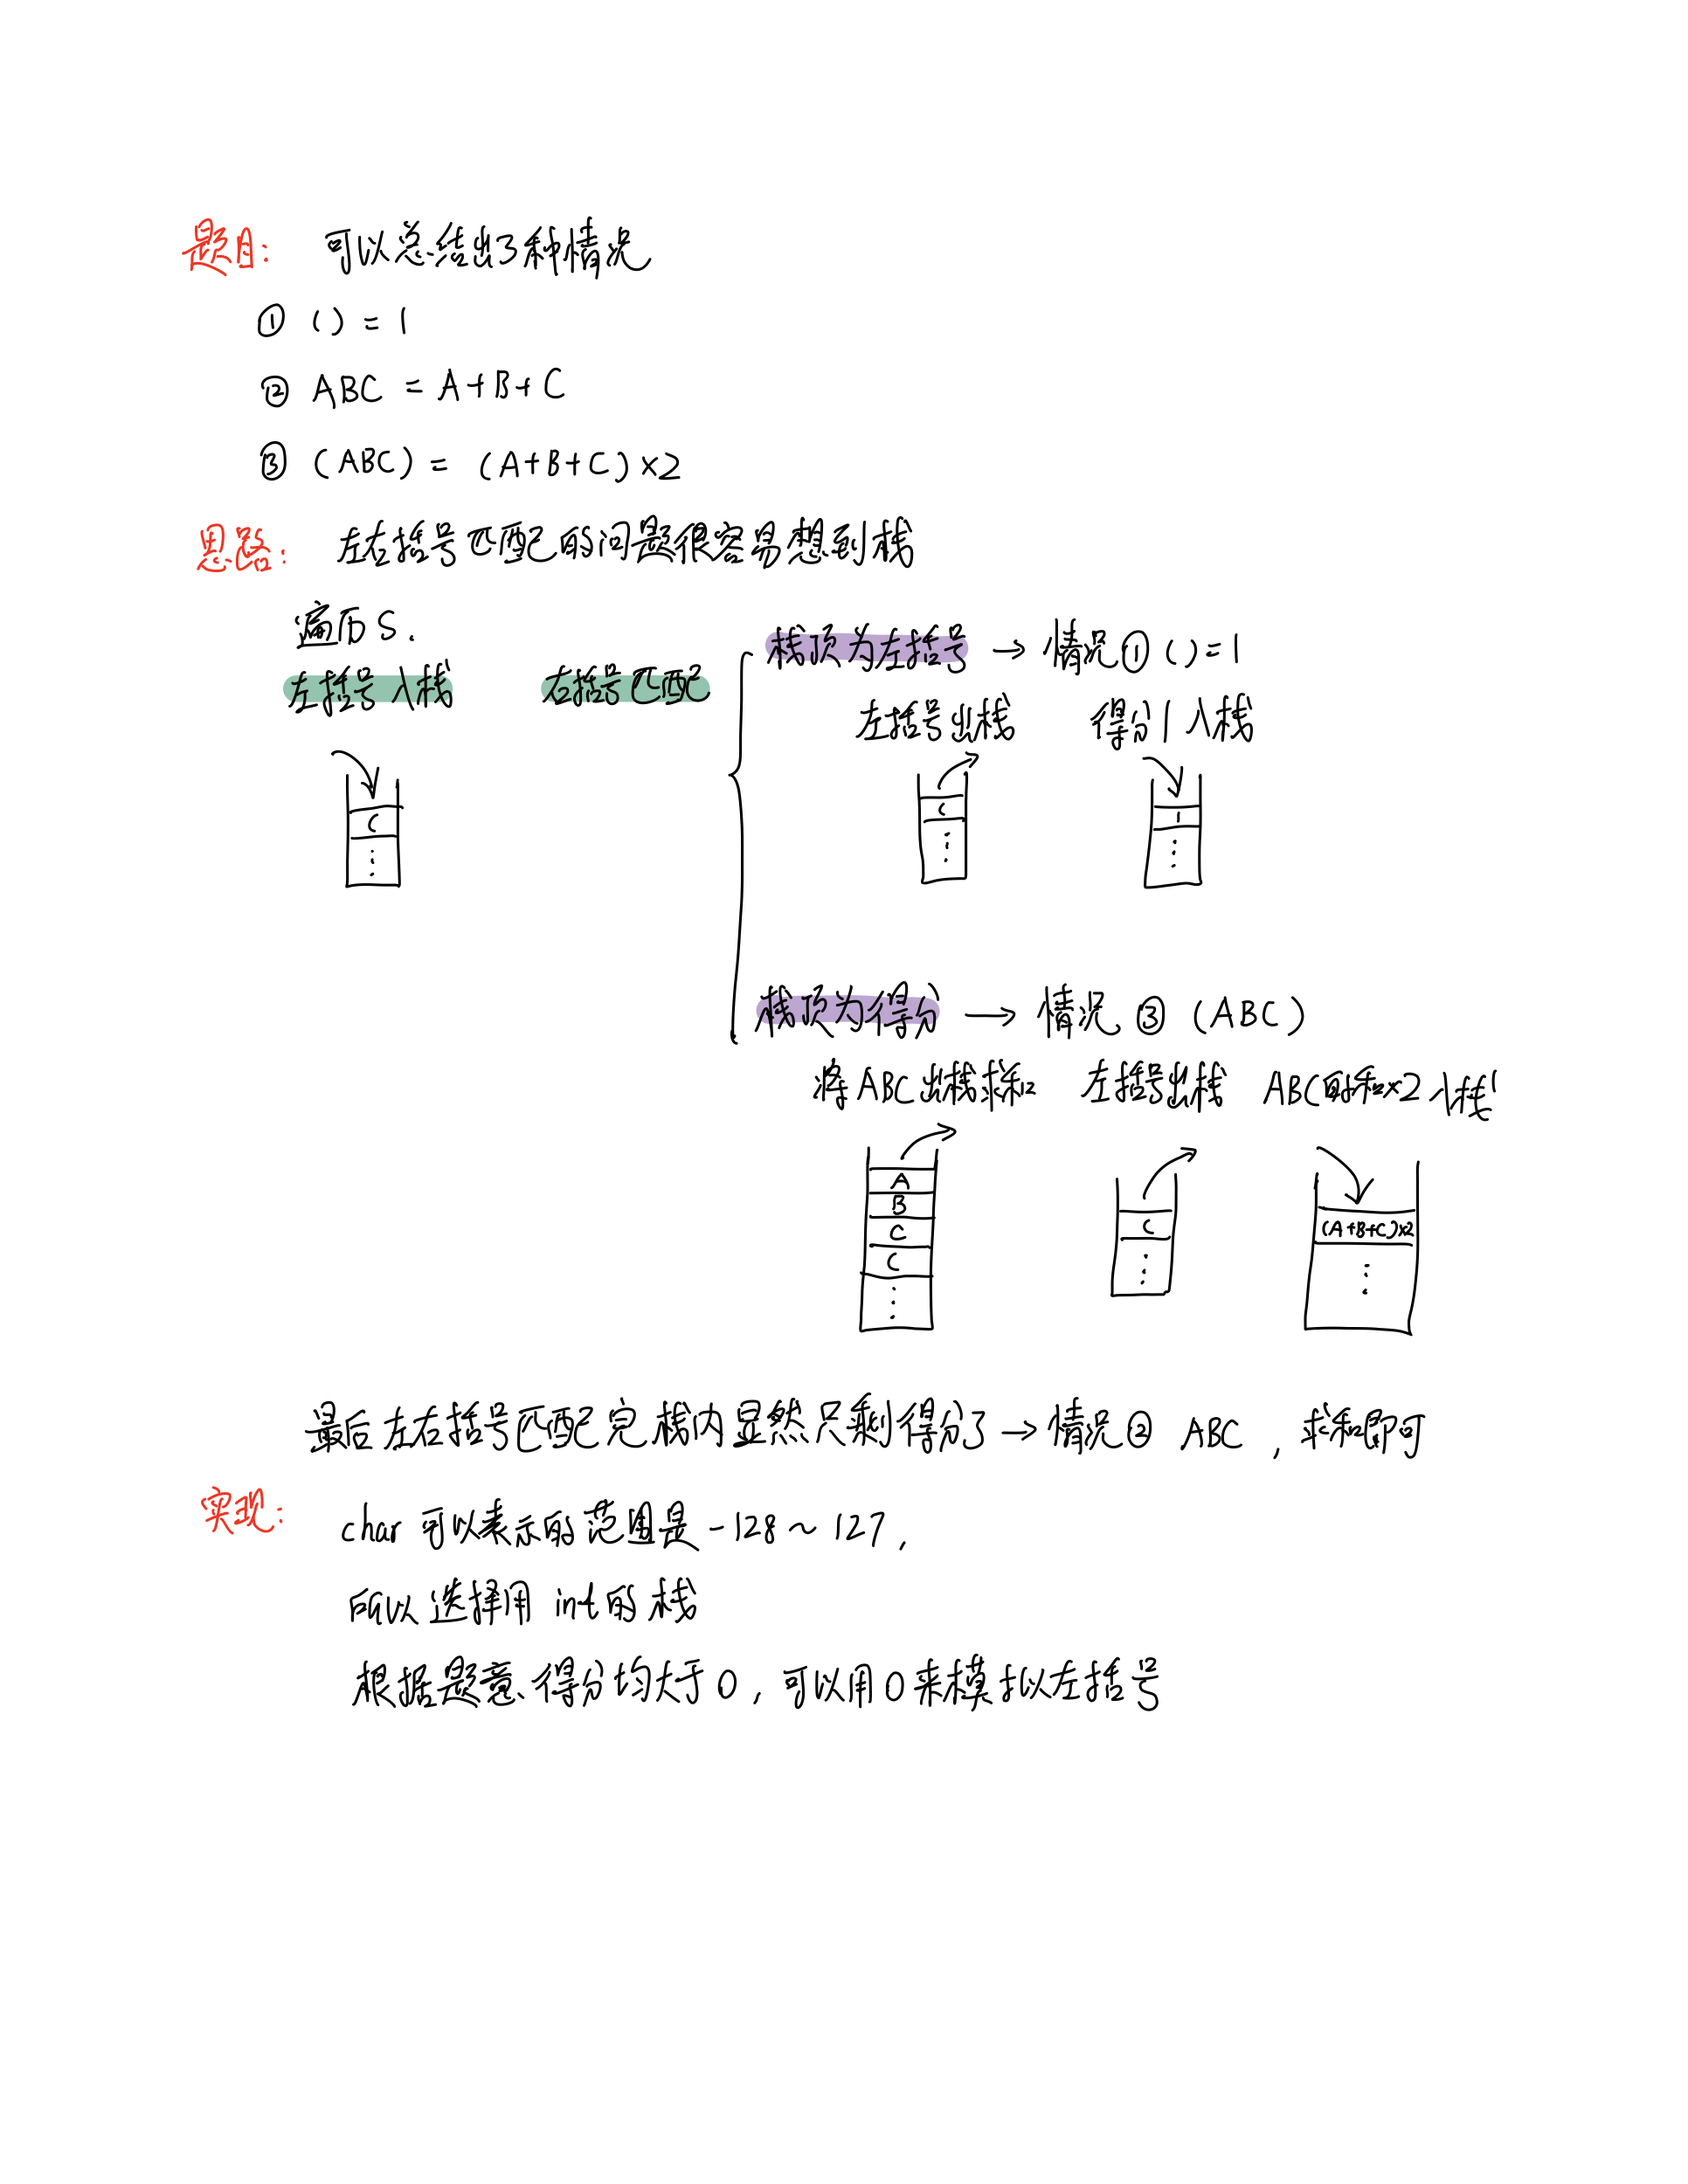 题目: 可以总结出3种情况
① () = 1
② ABC = A+B+C
③ (ABC) = (A+B+C)×2
思路: 左右括号匹配的问题很容易想到栈
遍历S.
左括号入栈 右括号匹配
栈顶为左括号 → 情况① ()=1
左括号出栈 得分1入栈
(
⋮
(
⋮
1
⋮
栈顶为得分 → 情况③ (ABC)
将ABC出栈求和 左括号出栈 ABC的和×2入栈
A
B
C
(
⋮
(
⋮
(A+B+C)×2
⋮
最后左右括号匹配完栈内显然只剩得分了→情况② ABC, 求和即可
实现: char可以表示的范围是-128~127,
所以选择用int的栈
根据题意,得分均大于0,可以用0来模拟左括号